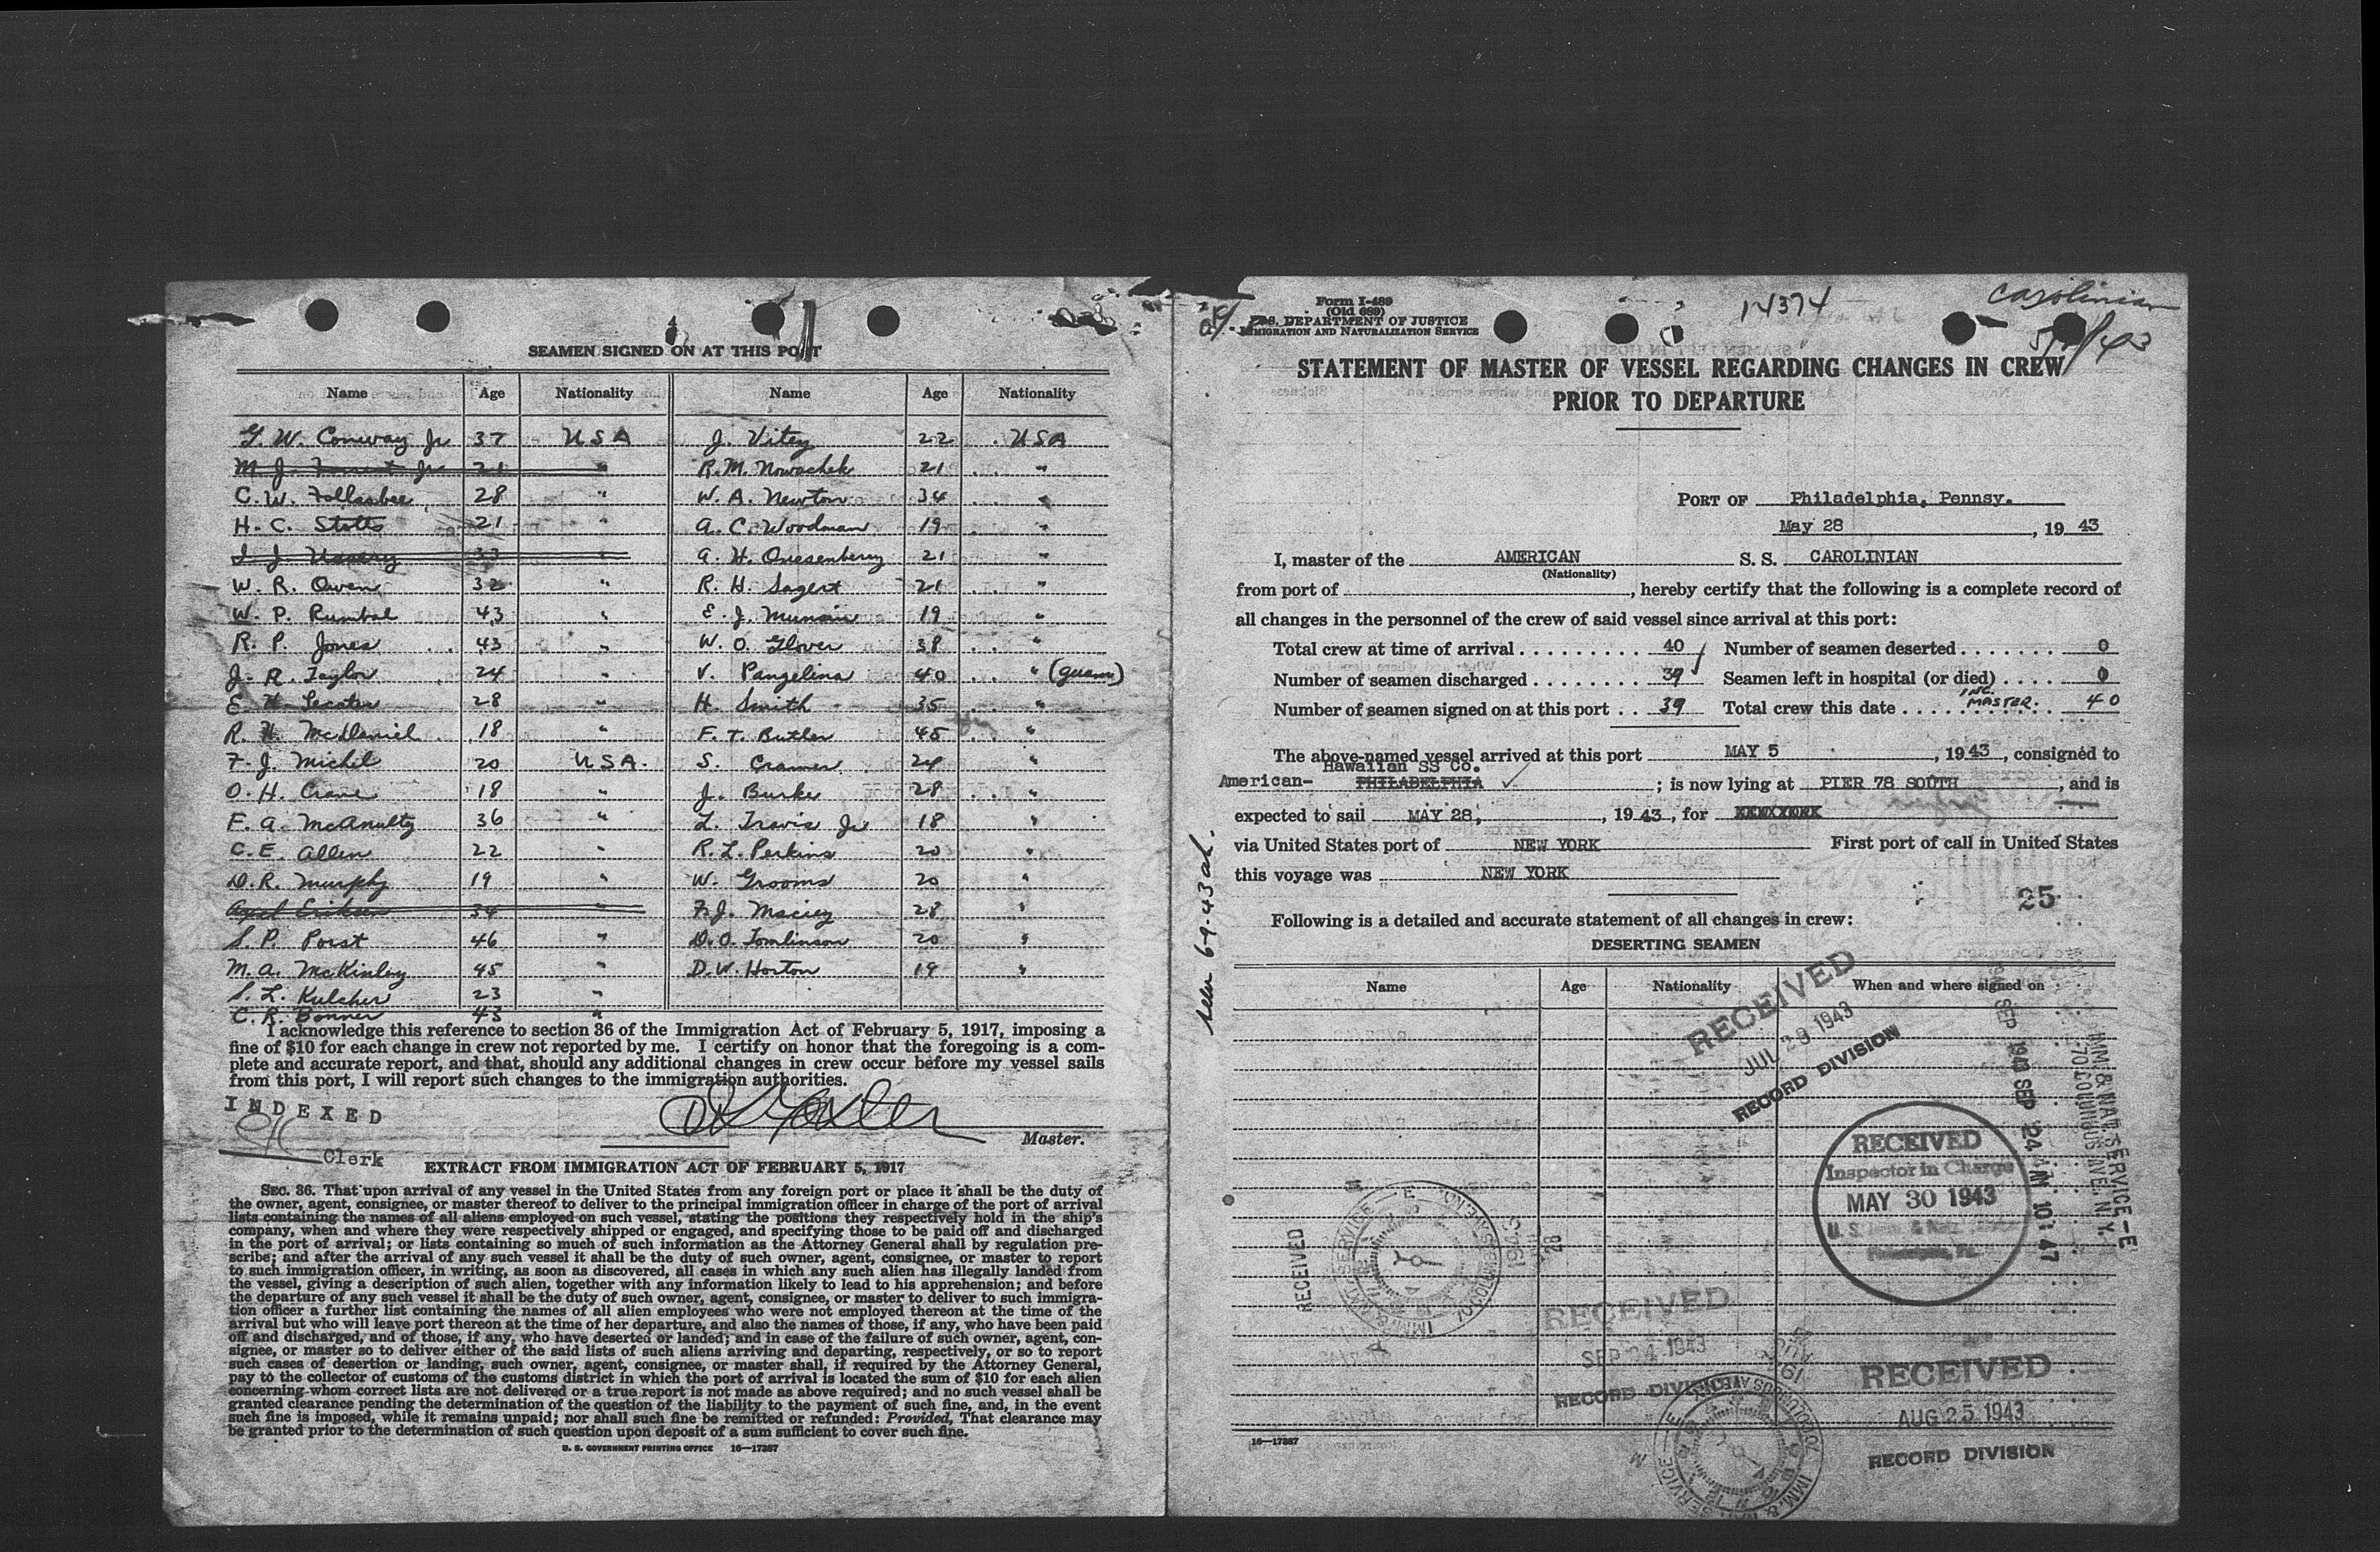 4
SEAMEN SIGNED ON AT THIS PORT
Name Age Nationality Name Age Nationality
G. W. Conway Jr 37 USA J. Vitey 22 USA
M. J. Jr 21 " R. M. Nowachek 21 "
C. W. Follasbee 28 " W. A. Newton 34 "
H. C. Stotts 21 " A. C. Woodman 19 "
33 " A. H. Quesenberry 21 "
W. R. Owen 32 " R. H. Sagert 21 "
W. P. Rumbal 43 " E. J. 19 "
R. P. Jones 43 " W. O. Glover 38 "
J. R. Taylor 24 " V. Pangelina 40 " (guam)
E. H. 28 " H. Smith 35 "
R. H. McDaniel 18 " F. T. Butler 45 "
F. J. Michil 20 USA. S. Cramer 24 "
O. H. Crane 18 " J. Burke 28 "
F. A. McAnulty 36 " L. Travis Jr 18 "
C. E. Allen 22 " R. L. Perkins 20 "
D. R. Murphy 19 " W. Grooms 20 "
Axel Eriksen 34 " F. J. Maciey 28 "
S. P. Porst 46 " D. O. Tomlinson 20 "
M. A. McKinley 45 " D. W. Horton 19 "
S. L. Kulcher 23 "
C. R. Bonner 43 "
I acknowledge this reference to section 36 of the Immigration Act of February 5, 1917, imposing a
fine of $10 for each change in crew not reported by me. I certify on honor that the foregoing is a com-
plete and accurate report, and that, should any additional changes in crew occur before my vessel sails
from this port, I will report such changes to the immigration authorities.
INDEXED
Master.
Clerk
EXTRACT FROM IMMIGRATION ACT OF FEBRUARY 5, 1917
SEC. 36. That upon arrival of any vessel in the United States from any foreign port or place it shall be the duty of
the owner, agent, consignee, or master thereof to deliver to the principal immigration officer in charge of the port of arrival
lists containing the names of all aliens employed on such vessel, stating the positions they respectively hold in the ship's
company, when and where they were respectively shipped or engaged, and specifying those to be paid off and discharged
in the port of arrival; or lists containing so much of such information as the Attorney General shall by regulation pre-
scribe; and after the arrival of any such vessel it shall be the duty of such owner, agent, consignee, or master to report
to such immigration officer, in writing, as soon as discovered, all cases in which any such alien has illegally landed from
the vessel, giving a description of such alien, together with any information likely to lead to his apprehension; and before
the departure of any such vessel it shall be the duty of such owner, agent, consignee, or master to deliver to such immigra-
tion officer a further list containing the names of all alien employees who were not employed thereon at the time of the
arrival but who will leave port thereon at the time of her departure, and also the names of those, if any, who have been paid
off and discharged, and of those, if any, who have deserted or landed; and in case of the failure of such owner, agent, con-
signee, or master so to deliver either of the said lists of such aliens arriving and departing, respectively, or so to report
such cases of desertion or landing, such owner, agent, consignee, or master shall, if required by the Attorney General,
pay to the collector of customs of the customs district in which the port of arrival is located the sum of $10 for each alien
concerning whom correct lists are not delivered or a true report is not made as above required; and no such vessel shall be
granted clearance pending the determination of the question of the liability to the payment of such fine, and, in the event
such fine is imposed, while it remains unpaid; nor shall such fine be remitted or refunded: Provided, That clearance may
be granted prior to the determination of such question upon deposit of a sum sufficient to cover such fine.
U. S. GOVERNMENT PRINTING OFFICE 16—17387
Form I-489
(Old 689)
U.S. DEPARTMENT OF JUSTICE
IMMIGRATION AND NATURALIZATION SERVICE
14374
Carolinian
STATEMENT OF MASTER OF VESSEL REGARDING CHANGES IN CREW
PRIOR TO DEPARTURE
PORT OF Philadelphia, Pennsy.
May 28, 1943
I, master of the AMERICAN S. S. CAROLINIAN
(Nationality)
from port of , hereby certify that the following is a complete record of
all changes in the personnel of the crew of said vessel since arrival at this port:
Total crew at time of arrival 40 Number of seamen deserted 0
Number of seamen discharged 39 Seamen left in hospital (or died) 0
Number of seamen signed on at this port 39 Total crew this date INC. MASTER. 40
The above-named vessel arrived at this port MAY 5, 1943, consigned to
American-Hawaiian SS Co. PHILADELPHIA ; is now lying at PIER 78 SOUTH, and is
expected to sail MAY 28, , 1943, for NEW YORK
via United States port of NEW YORK First port of call in United States
this voyage was NEW YORK
25
Following is a detailed and accurate statement of all changes in crew:
DESERTING SEAMEN
Name Age Nationality When and where signed on
RECEIVED
JUL 28 1943
RECORD DIVISION
RECEIVED
Inspector in Charge
MAY 30 1943
Philadelphia, Pa.
1943 SEP 24 AM 10:47
IMM & NAT SERVICE-E
70 COLUMBUS AVE. N.Y.
RECEIVED
RECEIVED
SEP 24 1943
RECORD DIVISION
RECEIVED
AUG 25 1943
RECORD DIVISION
16—17387